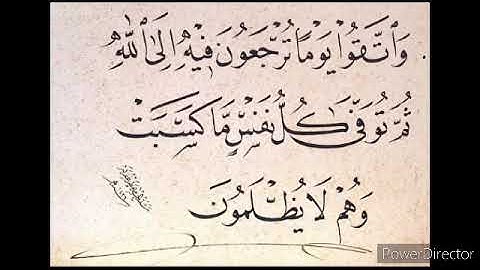 وَٱتَّقُوا۟ يَوْمًا تُرْجَعُونَ فِيهِ إِلَى ٱللَّهِ
ثُمَّ تُوَفَّىٰ كُلُّ نَفْسٍ مَّا كَسَبَتْ
وَهُمْ لَا يُظْلَمُونَ
PowerDirector